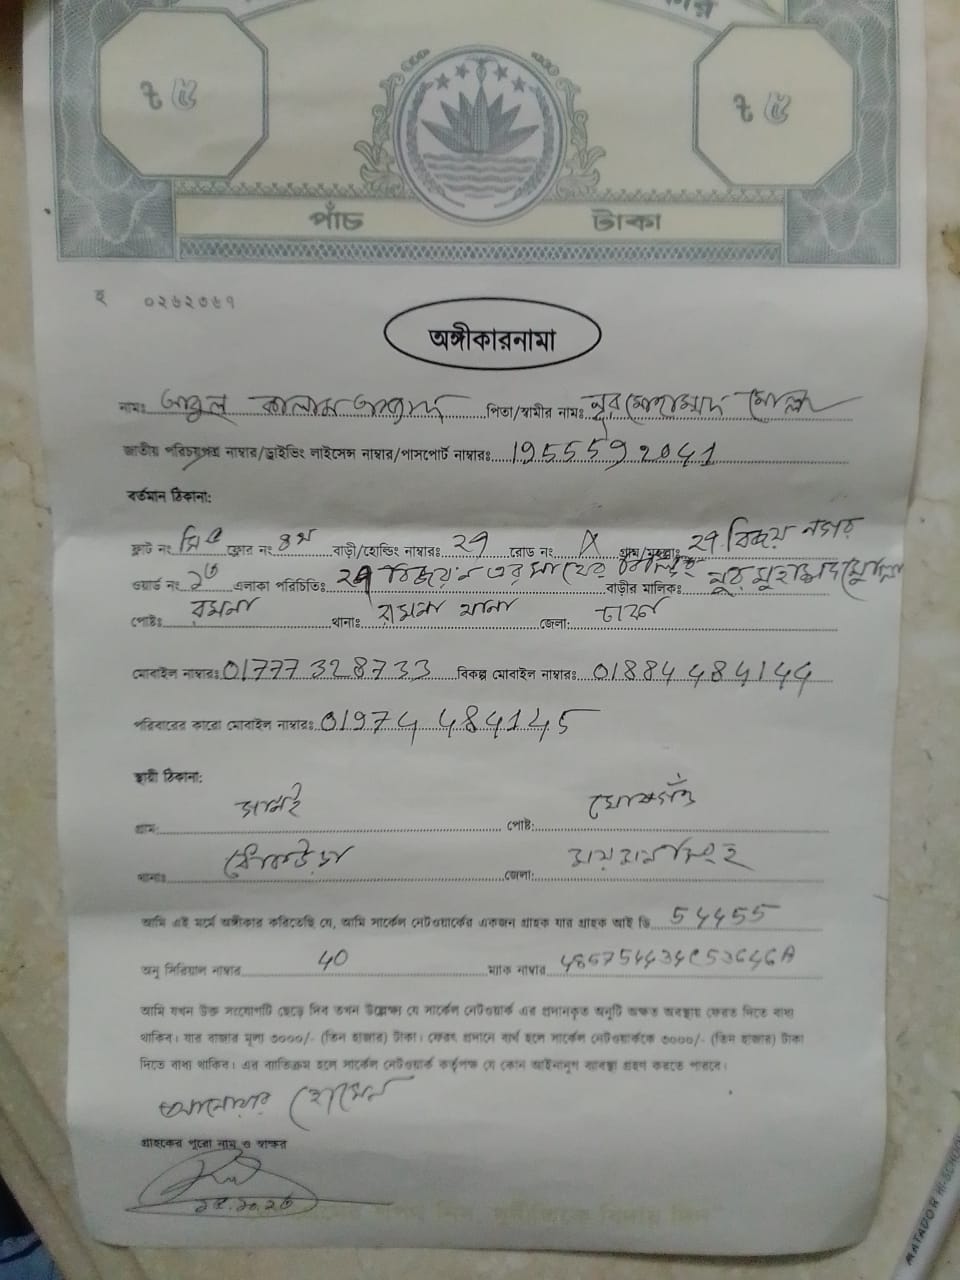 ৳ ৫ ৳ ৫
পাঁচ টাকা
হ ০২৬২৩৬৭
অঙ্গীকারনামা
নামঃ আবুল কালাম আজাদ পিতা/স্বামীর নামঃ নুর মোহাম্মদ মোল্লা
জাতীয় পরিচয়পত্র নাম্বার/ড্রাইভিং লাইসেন্স নাম্বার/পাসপোর্ট নাম্বারঃ 1955592041
বর্তমান ঠিকানা:
ফ্লাট নং ফ্লোর নং ৪র্থ বাড়ী/হোল্ডিং নাম্বারঃ ২৭ রোড নং X গ্রাম/মহল্লাঃ ২৭ বিজয় নগর
ওয়ার্ড নং এলাকা পরিচিতিঃ ২৭ বাড়ীর মালিকঃ নুর মুহাম্মদ মোল্লা
পোষ্টঃ রমনা থানাঃ রমনা থানা জেলা: ঢাকা
মোবাইল নাম্বারঃ 01777328733 বিকল্প মোবাইল নাম্বারঃ 01884484144
পরিবারের কারো মোবাইল নাম্বারঃ 01974484145
স্থায়ী ঠিকানা:
গ্রাম: পোষ্ট:
থানাঃ জেলা:
আমি এই মর্মে অঙ্গীকার করিতেছি যে, আমি সার্কেল নেটওয়ার্কের একজন গ্রাহক যার গ্রাহক আই ডি 54455
অনু সিরিয়াল নাম্বার 40 ম্যাক নাম্বার
আমি যখন উক্ত সংযোগটি ছেড়ে দিব তখন উল্লেখ্য যে সার্কেল নেটওয়ার্ক এর প্রদানকৃত অনুটি অক্ষত অবস্থায় ফেরত দিতে বাধ্য
থাকিব। যার বাজার মূল্য ৩০০০/- (তিন হাজার) টাকা। ফেরৎ প্রদানে ব্যর্থ হলে সার্কেল নেটওয়ার্ককে ৩০০০/- (তিন হাজার) টাকা
দিতে বাধ্য থাকিব। এর ব্যতিক্রম হলে সার্কেল নেটওয়ার্ক কর্তৃপক্ষ যে কোন আইনানুগ ব্যবস্থা গ্রহণ করতে পারবে।
আনোয়ার হোসেন
গ্রাহকের পুরো নাম ও স্বাক্ষর
MATADOR HI-SCHOOL